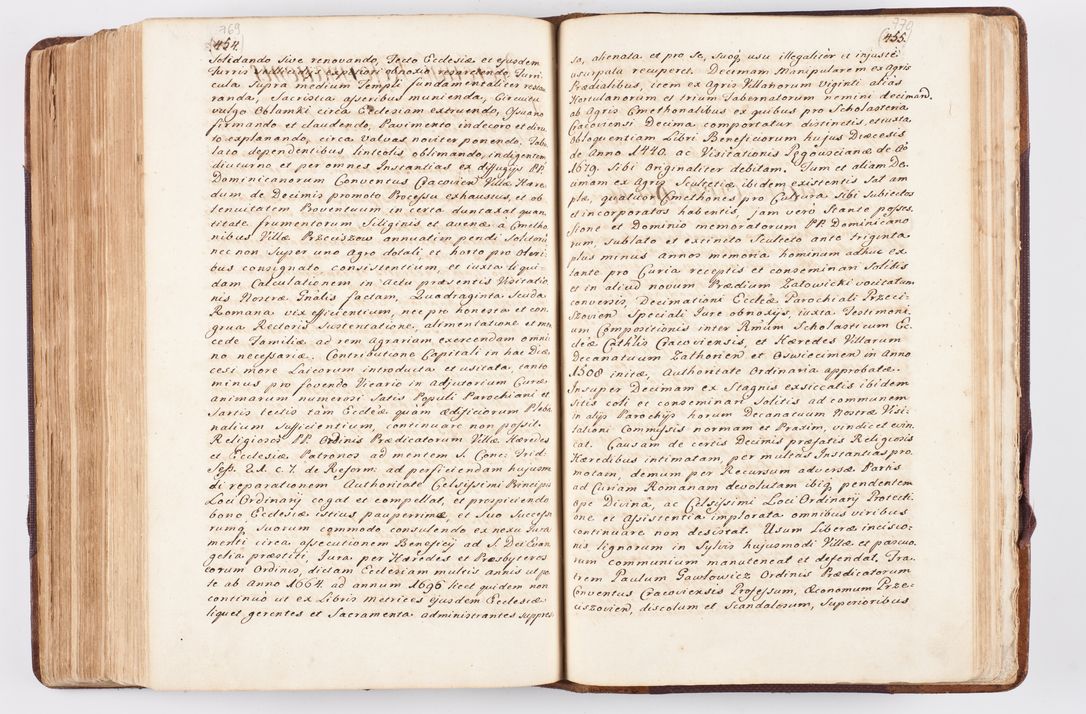 769
454.
Solidando sive renovando, Tecto Ecclesiæ et ejusdem
Turris expositi obnoxio resarciendo, Turri-
cula supra medium Templi fundamentaliter restau-
randa, Sacristia asseribus munienda, Circuitu
vulgo Oblamki circa Ecclesiam extruendo, Ossuario
firmando et claudendo, Pavimento indecoro et diru-
to explanando, circa valvas noviter ponendo, Tabu-
lato dependentibus linteolis oblimando, indigentem
diuturno et per omnes Instantias ex diffugijs PP.
Dominicanorum Conventus Cracovien Villæ Hære-
dum de Decimis promoto Processu exhaustus, et ob
tenuitatem Proventuum in certa duntaxat quan-
titate frumentorum Siliginis et avenæ à Cmetho-
nibus Villæ Przeciszow annuatim pendi Solitorum
nec non super uno Agro dotali et horto pro Oleri-
bus consignato, consistentium, et iuxta liqui-
dam Calculationem in Actu præsentis Visitatio-
nis Nostræ Gnalis factam, Quadraginta Scuda
Romana vix efficientium, nec pro honesta et con-
grua Rectoris Sustentatione, alimentatione et mer-
cede Familiæ ad rem Agrariam exercendam omni-
no necessariæ. Contributione Capitali in hac Diæ-
cesi more Laicorum introducta et usitata, tanto
minus pro fovendo Vicario in adjutorium Curæ
animarum numerosi satis Populi Parochiani et
Sartis tectis tam Ecclæ quam ædificiorum Pleba-
nalium Sufficientium, continuare non possit.
Religiosos PP. Ordinis Prædicatorum Villæ Hæredes
et Ecclesiæ Patronos ad mentem S. Conci: Trid:
Sess. 21. c. 7. de Reform: ad perficiendam hujusmo-
di reparationem Authoritate Celsissimi Principis
Loci Ordinarij cogat et compellat, et prospiciendo
bono Ecclesiæ istius pauperrimæ, et Suo Successo-
rumq suorum commodo consulendo ex nexu Jura-
menti circa assecutionem Beneficij ad S. Dei Evan-
gelia præstiti, Jura, per Hæredes et Præsbyteros
eorum Ordinis, dictam Ecclesiam multis annis utpo-
te ab Anno 1664 ad annum 1696 licet quidem non
continuo ut ex Libris metrices ejusdem Ecclesiæ
liquet, gerentes et Sacramenta administrantes suppres-
770
455.
sa, alienata et pro Se, suoq usu illegaliter et injuste
usurpata recuperet. Decimam Manipularem ex agris
Prædialibus, item ex agris Villanorum viginti alias
Hortulanorum et trium Tabernatorum nemini decimand.
ab Agris Cmethonalibus ex quibus pro Scholasteria
Cracoviensi Decima comportatur distinctis, et iuxta
Obloquentiam Libri Beneficiorum hujus Diæcesis
de Anno 1440. ac Visitationis Pegowscianæ de Ao
1679. Sibi Originaliter debitam. Tum et aliam De-
cimam ex Agris Scultetiæ ibidem existentis Sat am-
plæ, quatuor Cmethones pro Cultura Sibi Subiectos
et incorporatos habentis, jam vero Stante posses-
sione et Dominio memoratorum PP. Dominicano-
rum, sublato et extincto Sculteto ante triginta
plus minus Annos memoria hominum adhuc ex-
tante pro Curia receptis et conseminari Solitis
et in aliud novum Prædium Zalowicki vocitatum
conversis, Decimationi Eccleæ Parochiali Przeci-
szovien Speciali Jure obnoxijs, iuxta Testimoni-
um Compositionis inter Rmum Scholasticum Ec-
cleæ Cathlis Cracoviensis, et Hæredes Villarum
Decanatuum Zathorien et Oswiecimen in Anno
1508 initæ, Authoritate Ordinaria approbatæ.
Insuper Decimam ex Stagnis exsiccatis ibidem
Sitis coli et conseminari Solitis ad communem
in alijs Parochijs horum Decanatuum Nostræ Visi-
tationi Commissis normam et Praxim, vindicet evin-
cat. Causam de certis Decimis præfatis Religiosis
Hæredibus intimatam, per multas Instantias pro-
motam, demum per Recursum adversæ Partis
ad Curiam Romanam devolutam ibiq pendentem
ope Divina, ac Celsissimi Loci Ordinarij Protecti-
one et Assistentia implorata omnibus viribus
continuare non desistat. Usum Liberæ incisio-
nis lignorum in Sylvis hujusmodi Villæ et pascuo-
rum communium manuteneat et defendat. Fra-
trem Paulum Gawlowicz Ordinis Prædicatorum
Conventus Cracoviensis Professum, Œconomum Prze-
ciszovien, discolum et Scandalosum, Superioribus